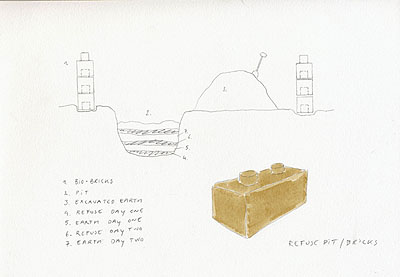 1.
2.
3.
7.
6.
5.
4.
1. BIO-BRICKS
2 PIT
3 EXCAVATED EARTH
4. REFUSE DAY ONE
5. EARTH DAY ONE
6. REFUSE DAY TWO
7. EARTH DAY TWO
REFUSE PIT / BRICKS